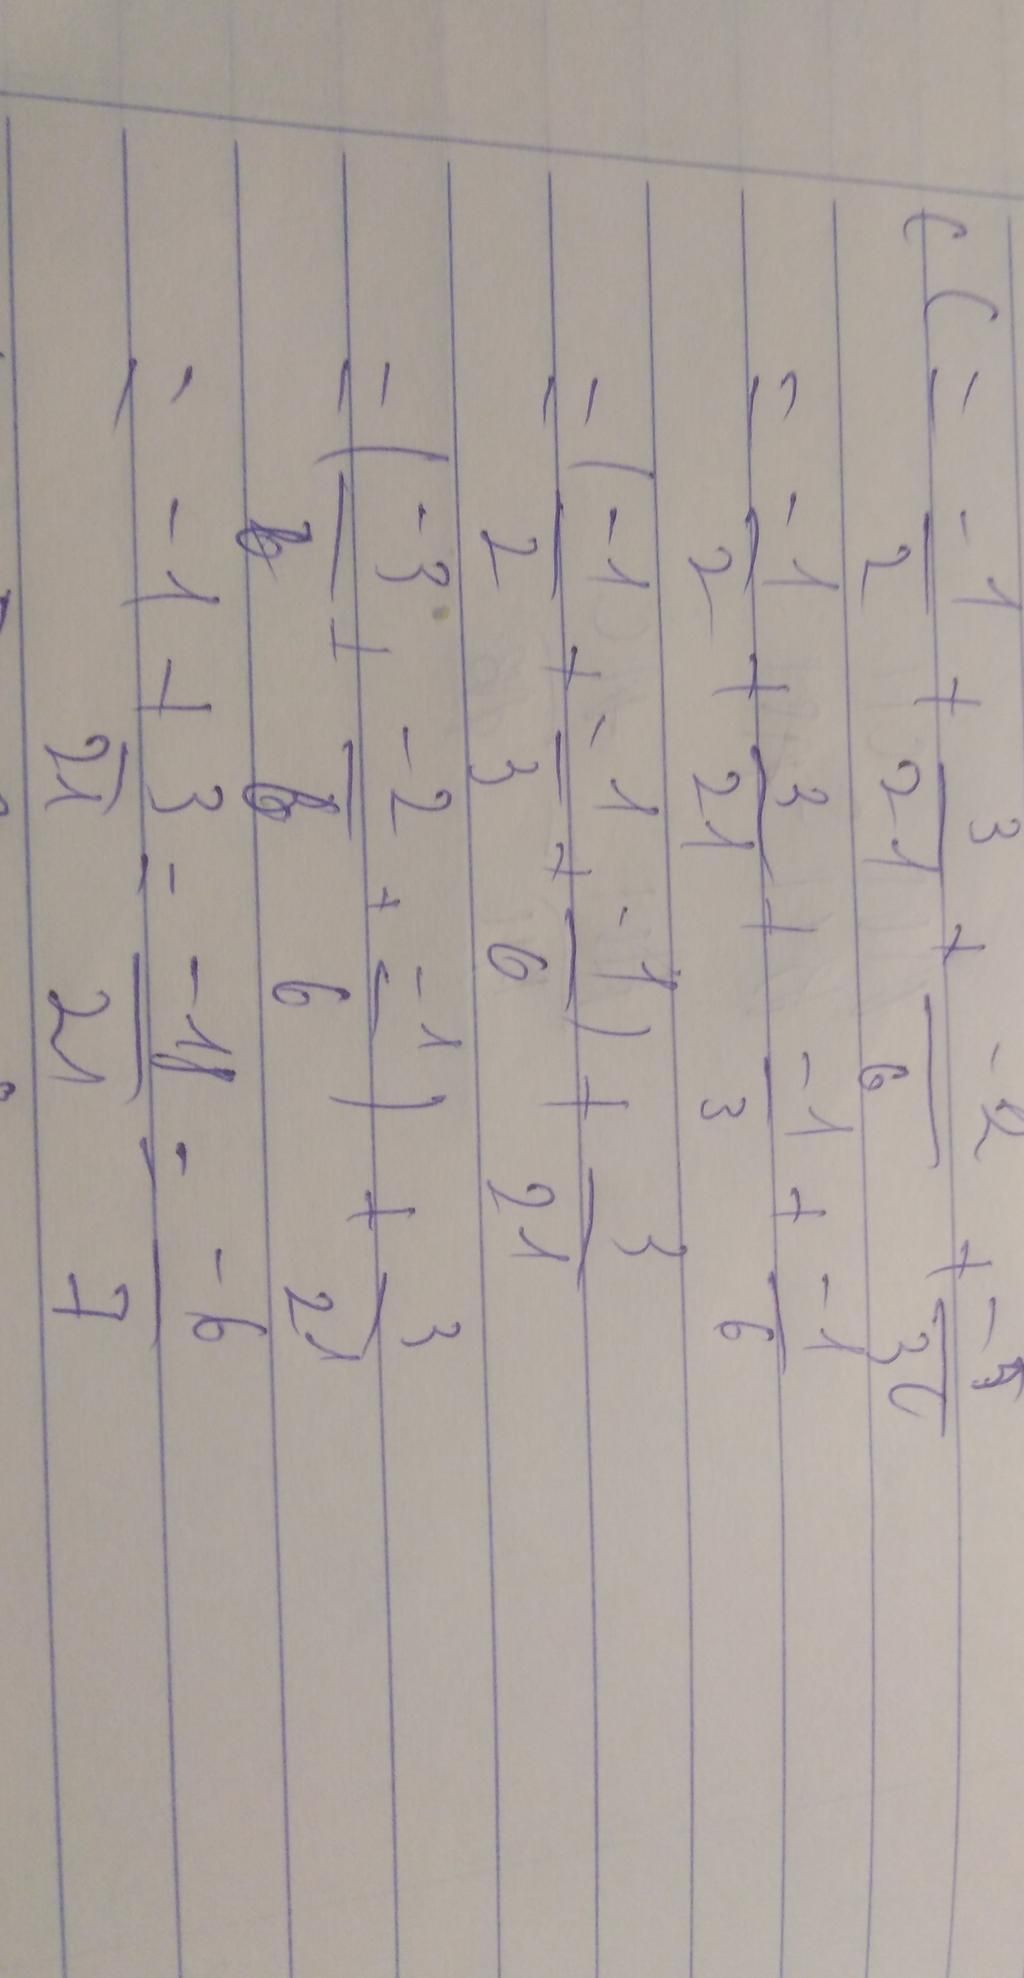 C = -1/2 + 3/21 + -2/6 + -5/30
= -1/2 + 3/21 + -1/3 + -1/6
= (-1/2 + -1/3 + -1/6) + 3/21
= (-3/6 + -2/6 + -1/6) + 3/21
= -1 + 3/21 = -18/21 = -6/7